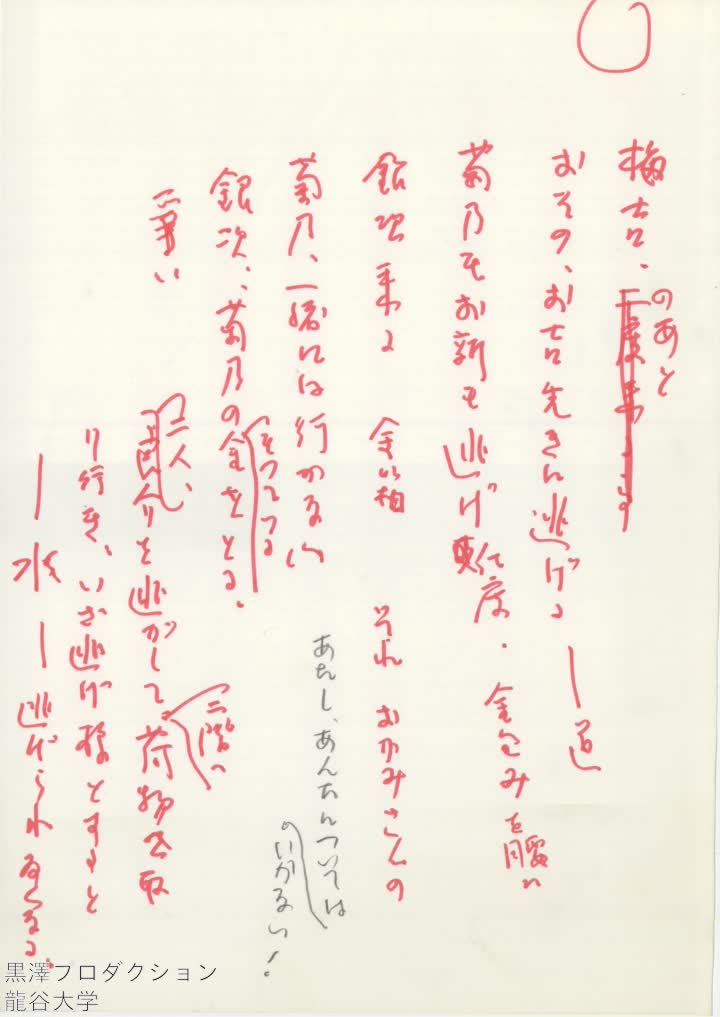 梅吉、のあと
おその、お吉先きに逃げる ー 道
菊乃もお新も逃げ支度、金包みを腰に
銀次来る 金の相 それ おかみさんの
あたし、あんたについては
のいかない!
菊乃、一緒には行かない
もってつる
銀次、菊乃の金をとる。
争い
二階へ
二人、
介を逃がして荷物を取
り行き、いざ逃げ様とすると
ー 水 ー 逃げられなくなる。
黒澤プロダクション
龍谷大学